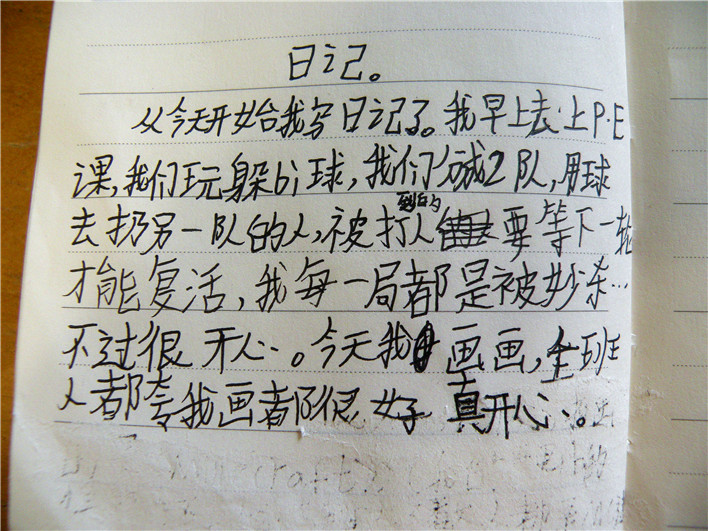 日记。
从今天开始我写日记了。我早上去上P.E
课,我们玩躲bi球,我们分成2队,用球
去扔另一队的人,被打到的人要等下一轮
才能复活,我每一局都是被妙杀…
不过很开心。今天我画画,全班
人都夸我画都很好真开心。